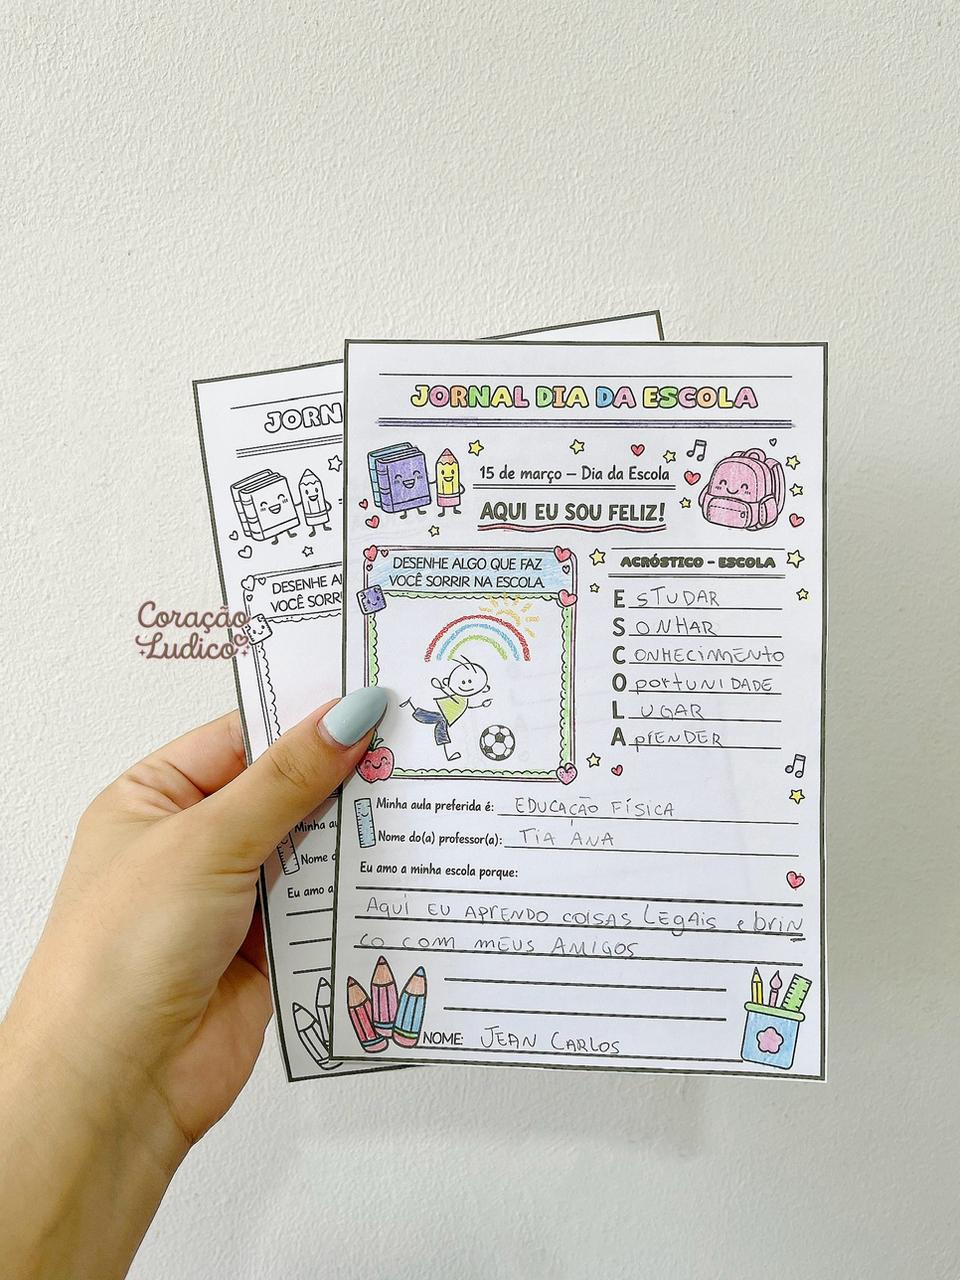 JORNAL DIA DA ESCOLA
15 de março – Dia da Escola
AQUI EU SOU FELIZ!
DESENHE ALGO QUE FAZ
VOCÊ SORRIR NA ESCOLA
ACRÓSTICO - ESCOLA
ESTUDAR
SONHAR
CONHECIMENTO
OPORTUNIDADE
LUGAR
APRENDER
Minha aula preferida é: EDUCAÇÃO FÍSICA
Nome do(a) professor(a): TIA ANA
Eu amo a minha escola porque:
AQUI EU APRENDO COISAS LEGAIS e brin
co com meus AMIGOS
NOME: JEAN CARLOS
JORN
DESENHE AL
VOCÊ SORR
Minha au
Nome d
Eu amo a
Coração
Ludico